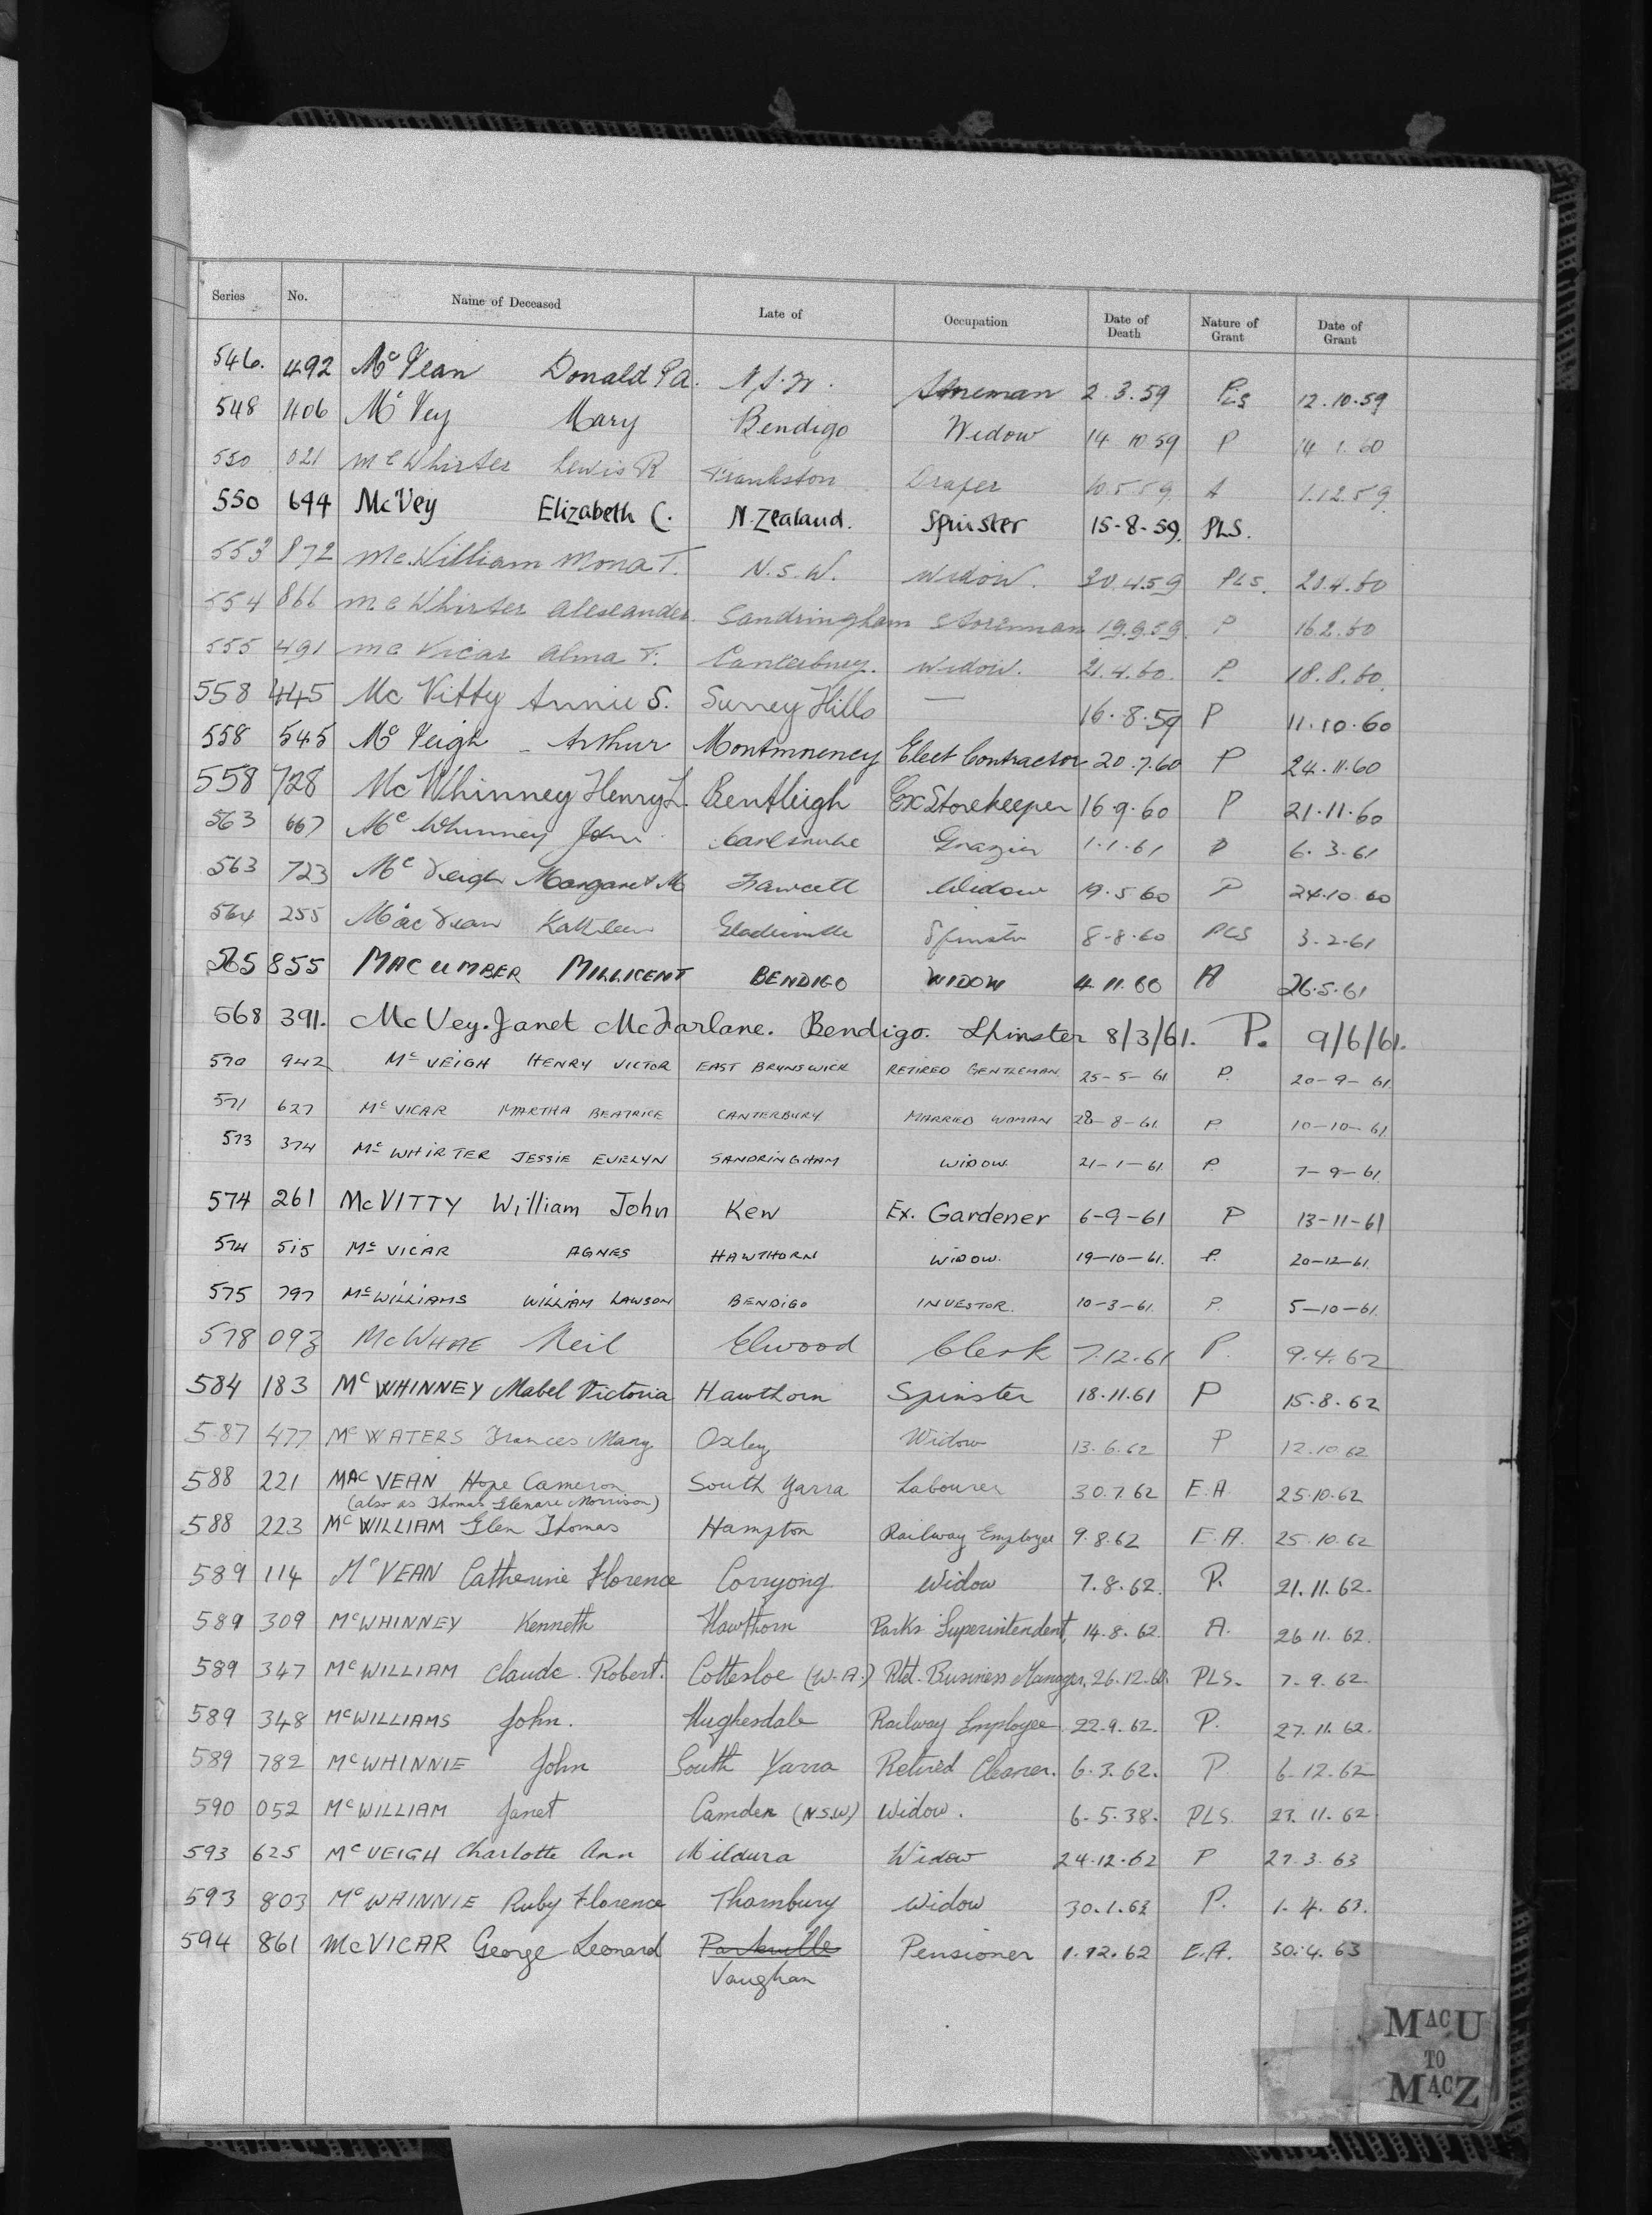 Series No. Name of Deceased Late of Occupation Date of Death Nature of Grant Date of Grant
546. 492 McVean Donald P.A. N.S.W. Storeman 2.3.59 PLS 12.10.59
548 406 McVey Mary Bendigo Widow 14 10 59 P 14 1.60
550 021 McWhirter Lewis R Frankston Draper 10.5.59 A 1.12.59
550 644 McVey Elizabeth C. N.Zealand. Spinster 15-8-59. PLS.
553 872 Mc.William Mona T. N.S.W. Widow. 30.4.59 PLS. 28.4.60
554 866 McWhirter Alexander. Sandringham Storeman 19.9.59. P 16.2.60
555 491 Mc Vicar Alma T. Canterbury. Widow. 21.4.60. P. 18.8.60.
558 445 Mc Vitty Annie S. Surrey Hills — 16.8.59 P 11.10.60
558 545 McVeigh - Arthur Montmorency Elect Contractor 20.7.60 P 24.11.60
558 728 McWhinney Henry L. Bentleigh Ex Storekeeper 16.9.60 P 21.11.60
563 667 McWhinney John Carlsruhe Grazier 1.1.61 P 6.3.61
563 723 McVeigh Margaret M Fawcett Widow 19.5.60 P 24.10.60
564 255 MacVean Kathleen Spinster 8-8-60 PLS 3-2-61
565 855 MACUMBER MILLICENT BENDIGO WIDOW 4.11.60 A 26.5.61
568 391. McVey. Janet McFarlane. Bendigo. Spinster 8/3/61. P. 9/6/61.
570 942 McVEIGH HENRY VICTOR EAST BRUNSWICK RETIRED GENTLEMAN. 25-5-61 P. 20-9-61.
571 627 McVICAR MARTHA BEATRICE CANTERBURY MARRIED WOMAN 28-8-61. P. 10-10-61.
573 374 McWHIRTER JESSIE EVELYN SANDRINGHAM WIDOW. 21-1-61. P. 7-9-61.
574 261 McVITTY William John Kew Ex. Gardener 6-9-61 P 13-11-61
574 515 McVICAR AGNES HAWTHORN WIDOW. 19-10-61. P. 20-12-61.
575 797 McWILLIAMS WILLIAM LAWSON BENDIGO INVESTOR. 10-3-61. P. 5-10-61.
578 093 McWHAE Neil Elwood Clerk 7.12.61 P. 9.4.62
584 183 McWHINNEY Mabel Victoria Hawthorn Spinster 18.11.61 P 15.8.62
587 477 McWATERS Frances Mary Oxley Widow 13.6.62 P 12.10.62
588 221 MACVEAN Hope Cameron South Yarra Labourer 30.7.62 E.A. 25.10.62
(also as Thomas Glenare Morrison)
588 223 McWILLIAM Glen Thomas Hampton Railway Employee 9.8.62 E.A. 25.10.62
589 114 McVEAN Catherine Florence Corryong Widow 7.8.62. P. 21.11.62.
589 309 McWHINNEY Kenneth Hawthorn Parks Superintendent, 14.8.62. A. 26.11.62.
589 347 McWILLIAM Claude. Robert. Cottesloe (W.A.) Rtd. Business Manager, 26.12. PLS. 7.9.62.
589 348 McWILLIAMS John. Hughesdale Railway Employee 22.9.62. P. 27.11.62.
589 782 McWHINNIE John South Yarra Retired Cleaner. 6.3.62. P 6.12.62
590 052 McWILLIAM Janet Camden (N.S.W) Widow. 6.5.38. PLS. 23.11.62.
593 625 McVEIGH Charlotte Ann Mildura Widow 24.12.62 P 27.3.63
593 803 McWHINNIE Ruby Florence Thornbury Widow 30.1.63 P. 1.4.63.
594 861 McVICAR George Leonard Parkville Pensioner 1.12.62 E.A. 30.4.63
Vaughan
MACU
TO
MACZ